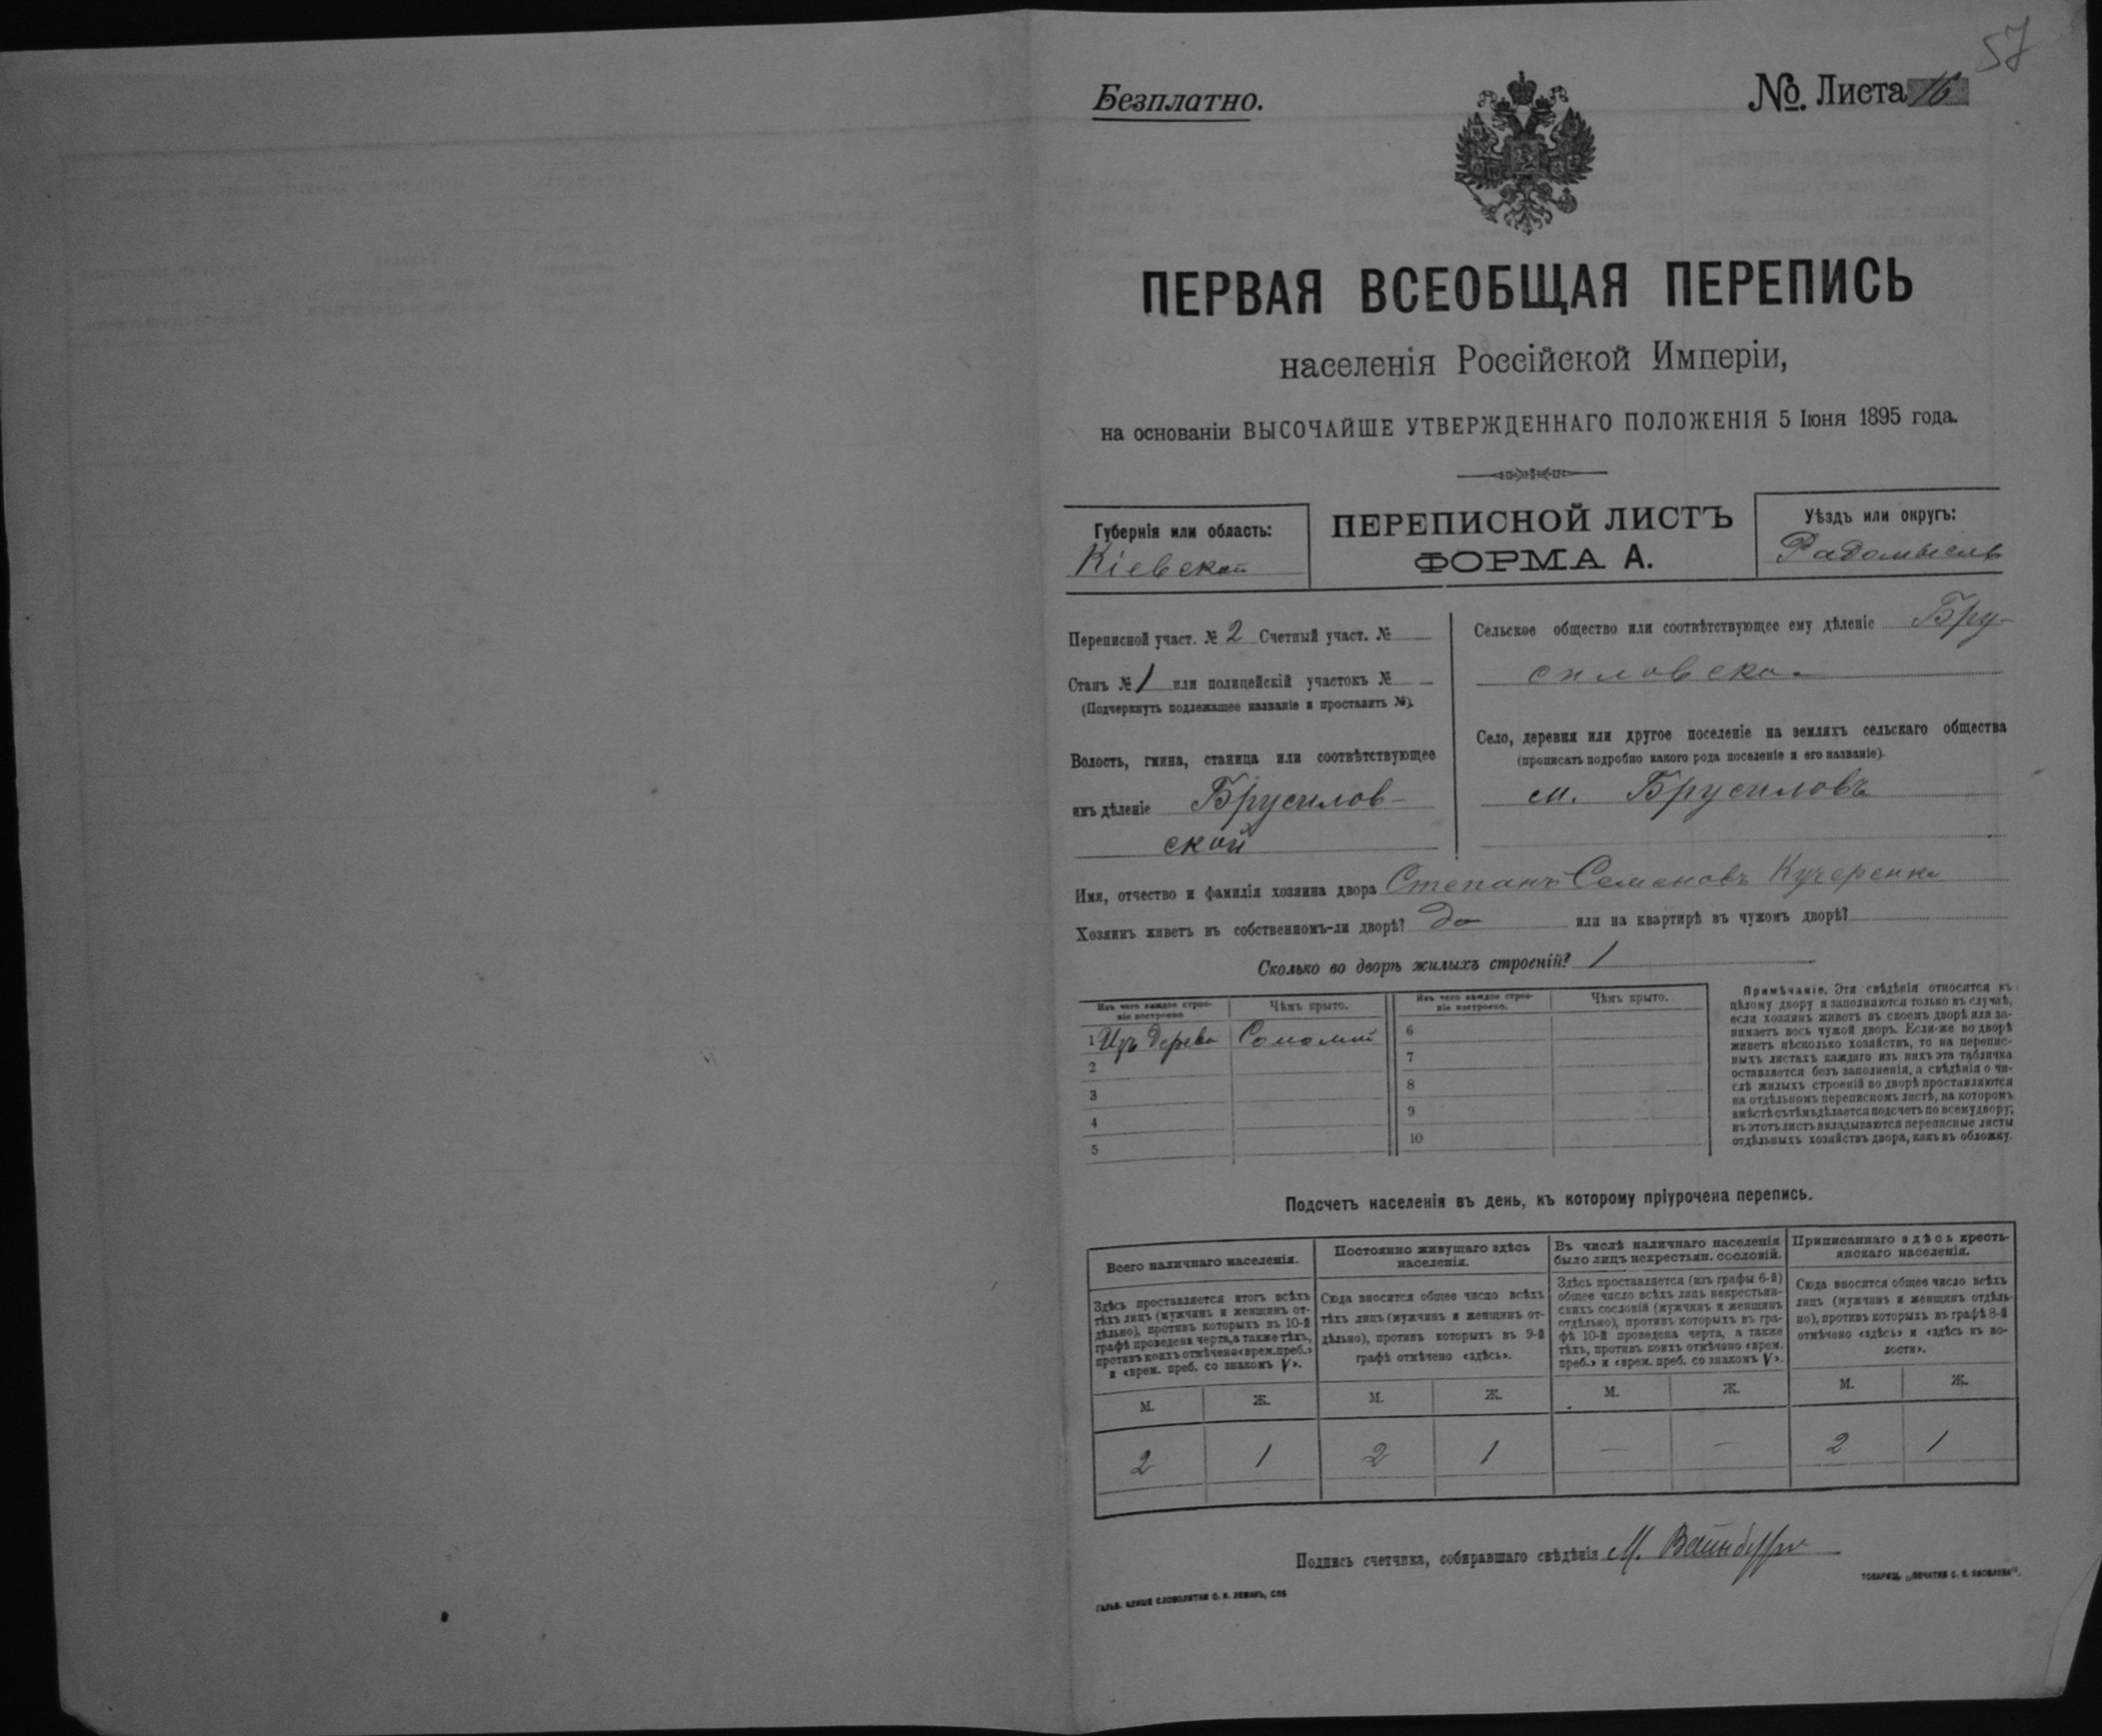 57
Безплатно.
№. Листа 16
ПЕРВАЯ ВСЕОБЩАЯ ПЕРЕПИСЬ
населенія Россійской Имперіи,
на основаніи ВЫСОЧАЙШЕ УТВЕРЖДЕННАГО ПОЛОЖЕНІЯ 5 Іюня 1895 года.
Губернія или область:
Кіевская
ПЕРЕПИСНОЙ ЛИСТЪ
ФОРМА А.
Уѣздъ или округъ:
Радомысль
Переписной участ. № 2 Счетный участ. № —
Станъ № 1 или полицейскій участокъ № —
(Подчеркнуть подлежащее названіе и проставить №).
Волость, гмина, станица или соотвѣтствующее
имъ дѣленіе Брусилов-
ской
Сельское общество или соотвѣтствующее ему дѣленіе Бру-
силовско
Село, деревня или другое поселеніе на земляхъ сельскаго общества
(прописать подробно какого рода поселеніе и его названіе).
м. Брусиловъ
Имя, отчество и фамилія хозяина двора Степанъ Семеновъ Кучеренко
Хозяинъ живетъ въ собственномъ-ли дворѣ? да или на квартирѣ въ чужомъ дворѣ?
Сколько во дворѣ жилыхъ строеній? 1
Изъ чего каждое строе-
ніе построено.
Чѣмъ крыто.
Изъ чего каждое строе-
ніе построено.
Чѣмъ крыто.
1 Изъ дерева Соломой 6
2 7
3 8
4 9
5 10
Примѣчаніе. Эти свѣдѣнія относятся къ
цѣлому двору и заполняются только въ случаѣ,
если хозяинъ живетъ въ своемъ дворѣ или за-
нимаетъ весь чужой дворъ. Если-же во дворѣ
живетъ нѣсколько хозяйствъ, то на перепис-
ныхъ листахъ каждаго изъ нихъ эта табличка
оставляется безъ заполненія, а свѣдѣнія о чи-
слѣ жилыхъ строеній во дворѣ проставляются
на отдѣльномъ переписномъ листѣ, на которомъ
вмѣстѣ съ тѣмъ дѣлается подсчетъ по всему двору;
въ этотъ листъ вкладываются переписные листы
отдѣльныхъ хозяйствъ двора, какъ въ обложку.
Подсчетъ населенія въ день, къ которому пріурочена перепись.
Всего наличнаго населенія.
Здѣсь проставляется итогъ всѣхъ
тѣхъ лицъ (мужчинъ и женщинъ от-
дѣльно), противъ которыхъ въ 10-й
графѣ проведена черта, а также тѣхъ,
противъ коихъ отмѣчено «врем. преб.»
и «врем. преб. со знакомъ V».
Постоянно живущаго здѣсь
населенія.
Сюда вносится общее число всѣхъ
тѣхъ лицъ (мужчинъ и женщинъ от-
дѣльно), противъ которыхъ въ 9-й
графѣ отмѣчено «здѣсь».
Въ числѣ наличнаго населенія
было лицъ некрестьян. сословій.
Здѣсь проставляется (изъ графы 6-й)
общее число всѣхъ лицъ некрестьян-
скихъ сословій (мужчинъ и женщинъ
отдѣльно), противъ которыхъ въ гра-
фѣ 10-й проведена черта, а также
тѣхъ, противъ коихъ отмѣчено «врем.
преб.» и «врем. преб. со знакомъ V».
Приписаннаго здѣсь кресть-
янскаго населенія.
Сюда вносится общее число всѣхъ
лицъ (мужчинъ и женщинъ отдѣль-
но), противъ которыхъ въ графѣ 8-й
отмѣчено «здѣсь» и «здѣсь въ во-
лости».
М. Ж. М. Ж. М. Ж. М. Ж.
2 1 2 1 — — 2 1
Подпись счетчика, собиравшаго свѣдѣнія М. Вайнберг
ГАЛЬВ. КЛИШЕ СЛОВОЛИТНИ О. И. ЛЕМАНЪ, СПБ
ТОВАРИЩ. „ПЕЧАТНЯ С. П. ЯКОВЛЕВА".